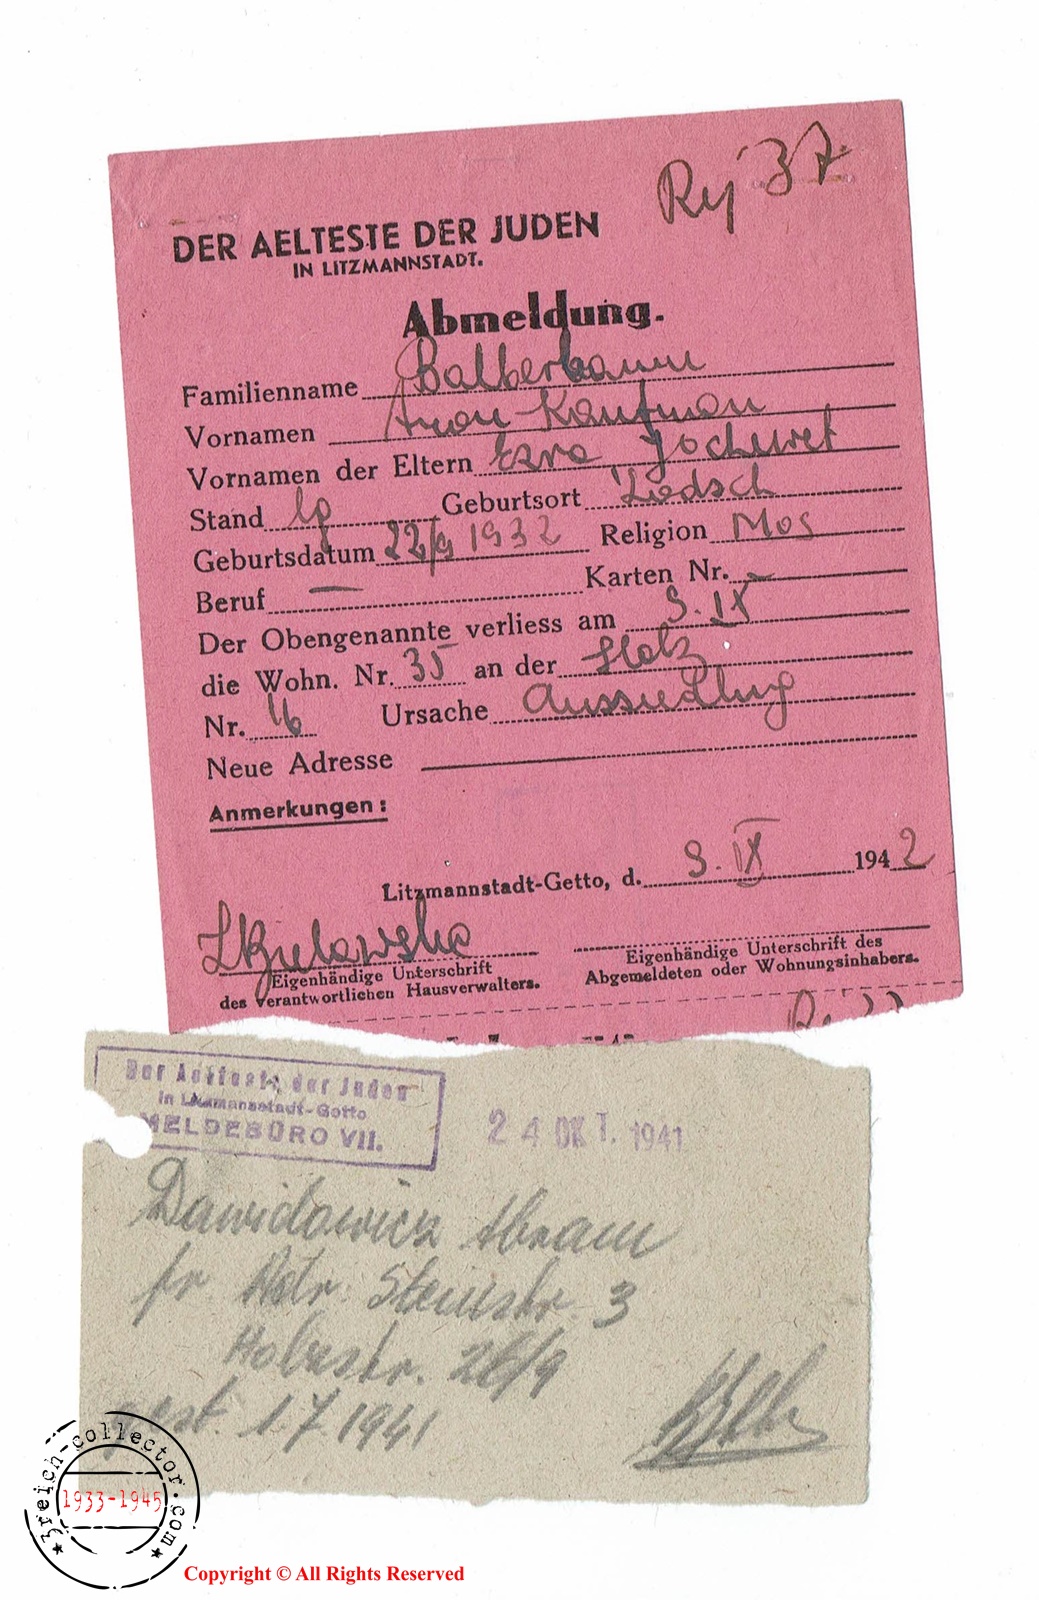 Rej 37
DER AELTESTE DER JUDEN
IN LITZMANNSTADT.
Abmeldung.
Familienname Balberbaum
Vornamen Aron Kaufman
Vornamen der Eltern Ezra Jochewet
Stand lg Geburtsort Lodsch
Geburtsdatum 22/9 1932 Religion Mos
Beruf — Karten Nr. —
Der Obengenannte verliess am 9. IX
die Wohn. Nr. 35 an der Holz
Nr. 16 Ursache Aussiedlung
Neue Adresse
Anmerkungen:
Litzmannstadt-Getto, d. 9. IX 1942
Eigenhändige Unterschrift
des verantwortlichen Hausverwalters.
Eigenhändige Unterschrift des
Abgemeldeten oder Wohnungsinhabers.
Der Aelteste der Juden
in Litzmannstadt-Getto
MELDEBÜRO VII.
24 OKT. 1941
Dawidowicz Abram
fr. Steinstr. 3
Holzstr. 26/9
gest. 1.7 1941
3reich-collector.com
1933-1945
Copyright © All Rights Reserved